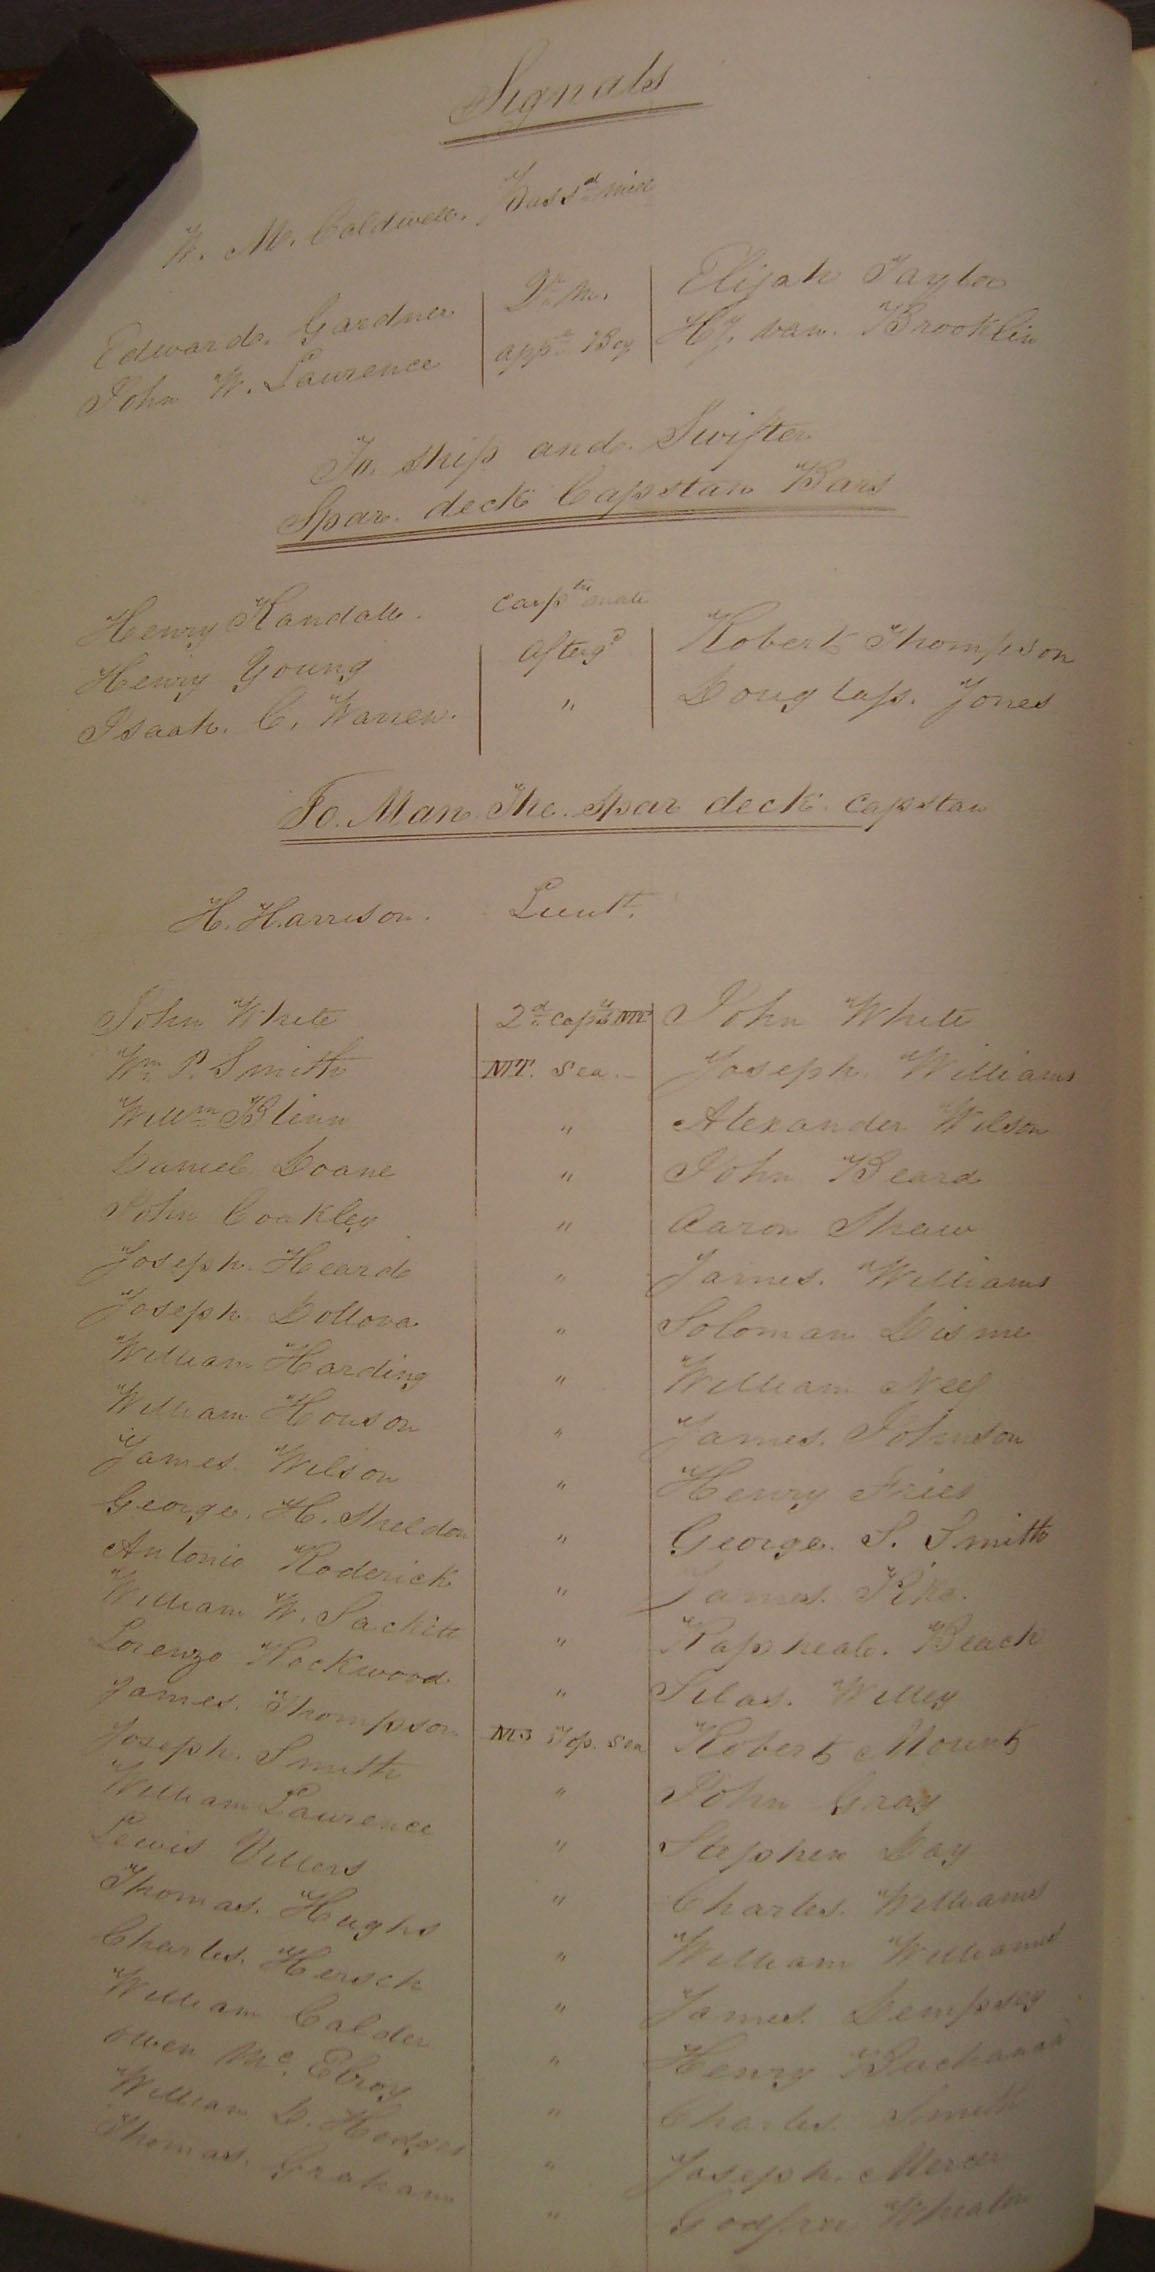 Signals
W. M. Caldwell. Pass.d Mid
Edward. Gardner Qr. M. Elijah Taylor
John W. Laurence app.n Boy Hy. van. Brooklin
To ship and. Swifter
Spar. deck Capstan Bars
Henry Randall. Carp.trs mate
Henry Young Afterg.d Robert Thompson
Isaah. C. Warren. " Douglass. Jones
To. Man. The. Spar deck. Capstan
H. Harrison. Lieut.
John White 2d capt MT John White
Wm P. Smith MT. Sea. Joseph. Williams
Willm Blinn " Alexander Wilson
Daniel Doane " John Beard
John Coakley " Aaron Shaw
Joseph. Heard " James. Williams
Joseph. Dollova " Soloman Disme
William Harding " William Neef
William Houson " James. Johnson
James. Wilson " Henry Fries
George. H. Sheldon " George. S. Smith
Antonio Roderick " James.
William W. Sackett " Rapheal. Beach
Lorenzo Rockwood. " Silas. Willey
James. Thompson Mz Top. Sea Robert Mount
Joseph. Smith " John Gray
William Laurence " Stephen Day
Lewis Villers " Charles. Williams
Thomas. Hughs " William Williams
Charles. Hersch " James. Dempsey
William Calder " Henry Buchanan
Owen Mc. Elroy " Charles. Smith
William D. Hodges " Joseph. Mercer
Thomas. Graham " Godfree Wheaton